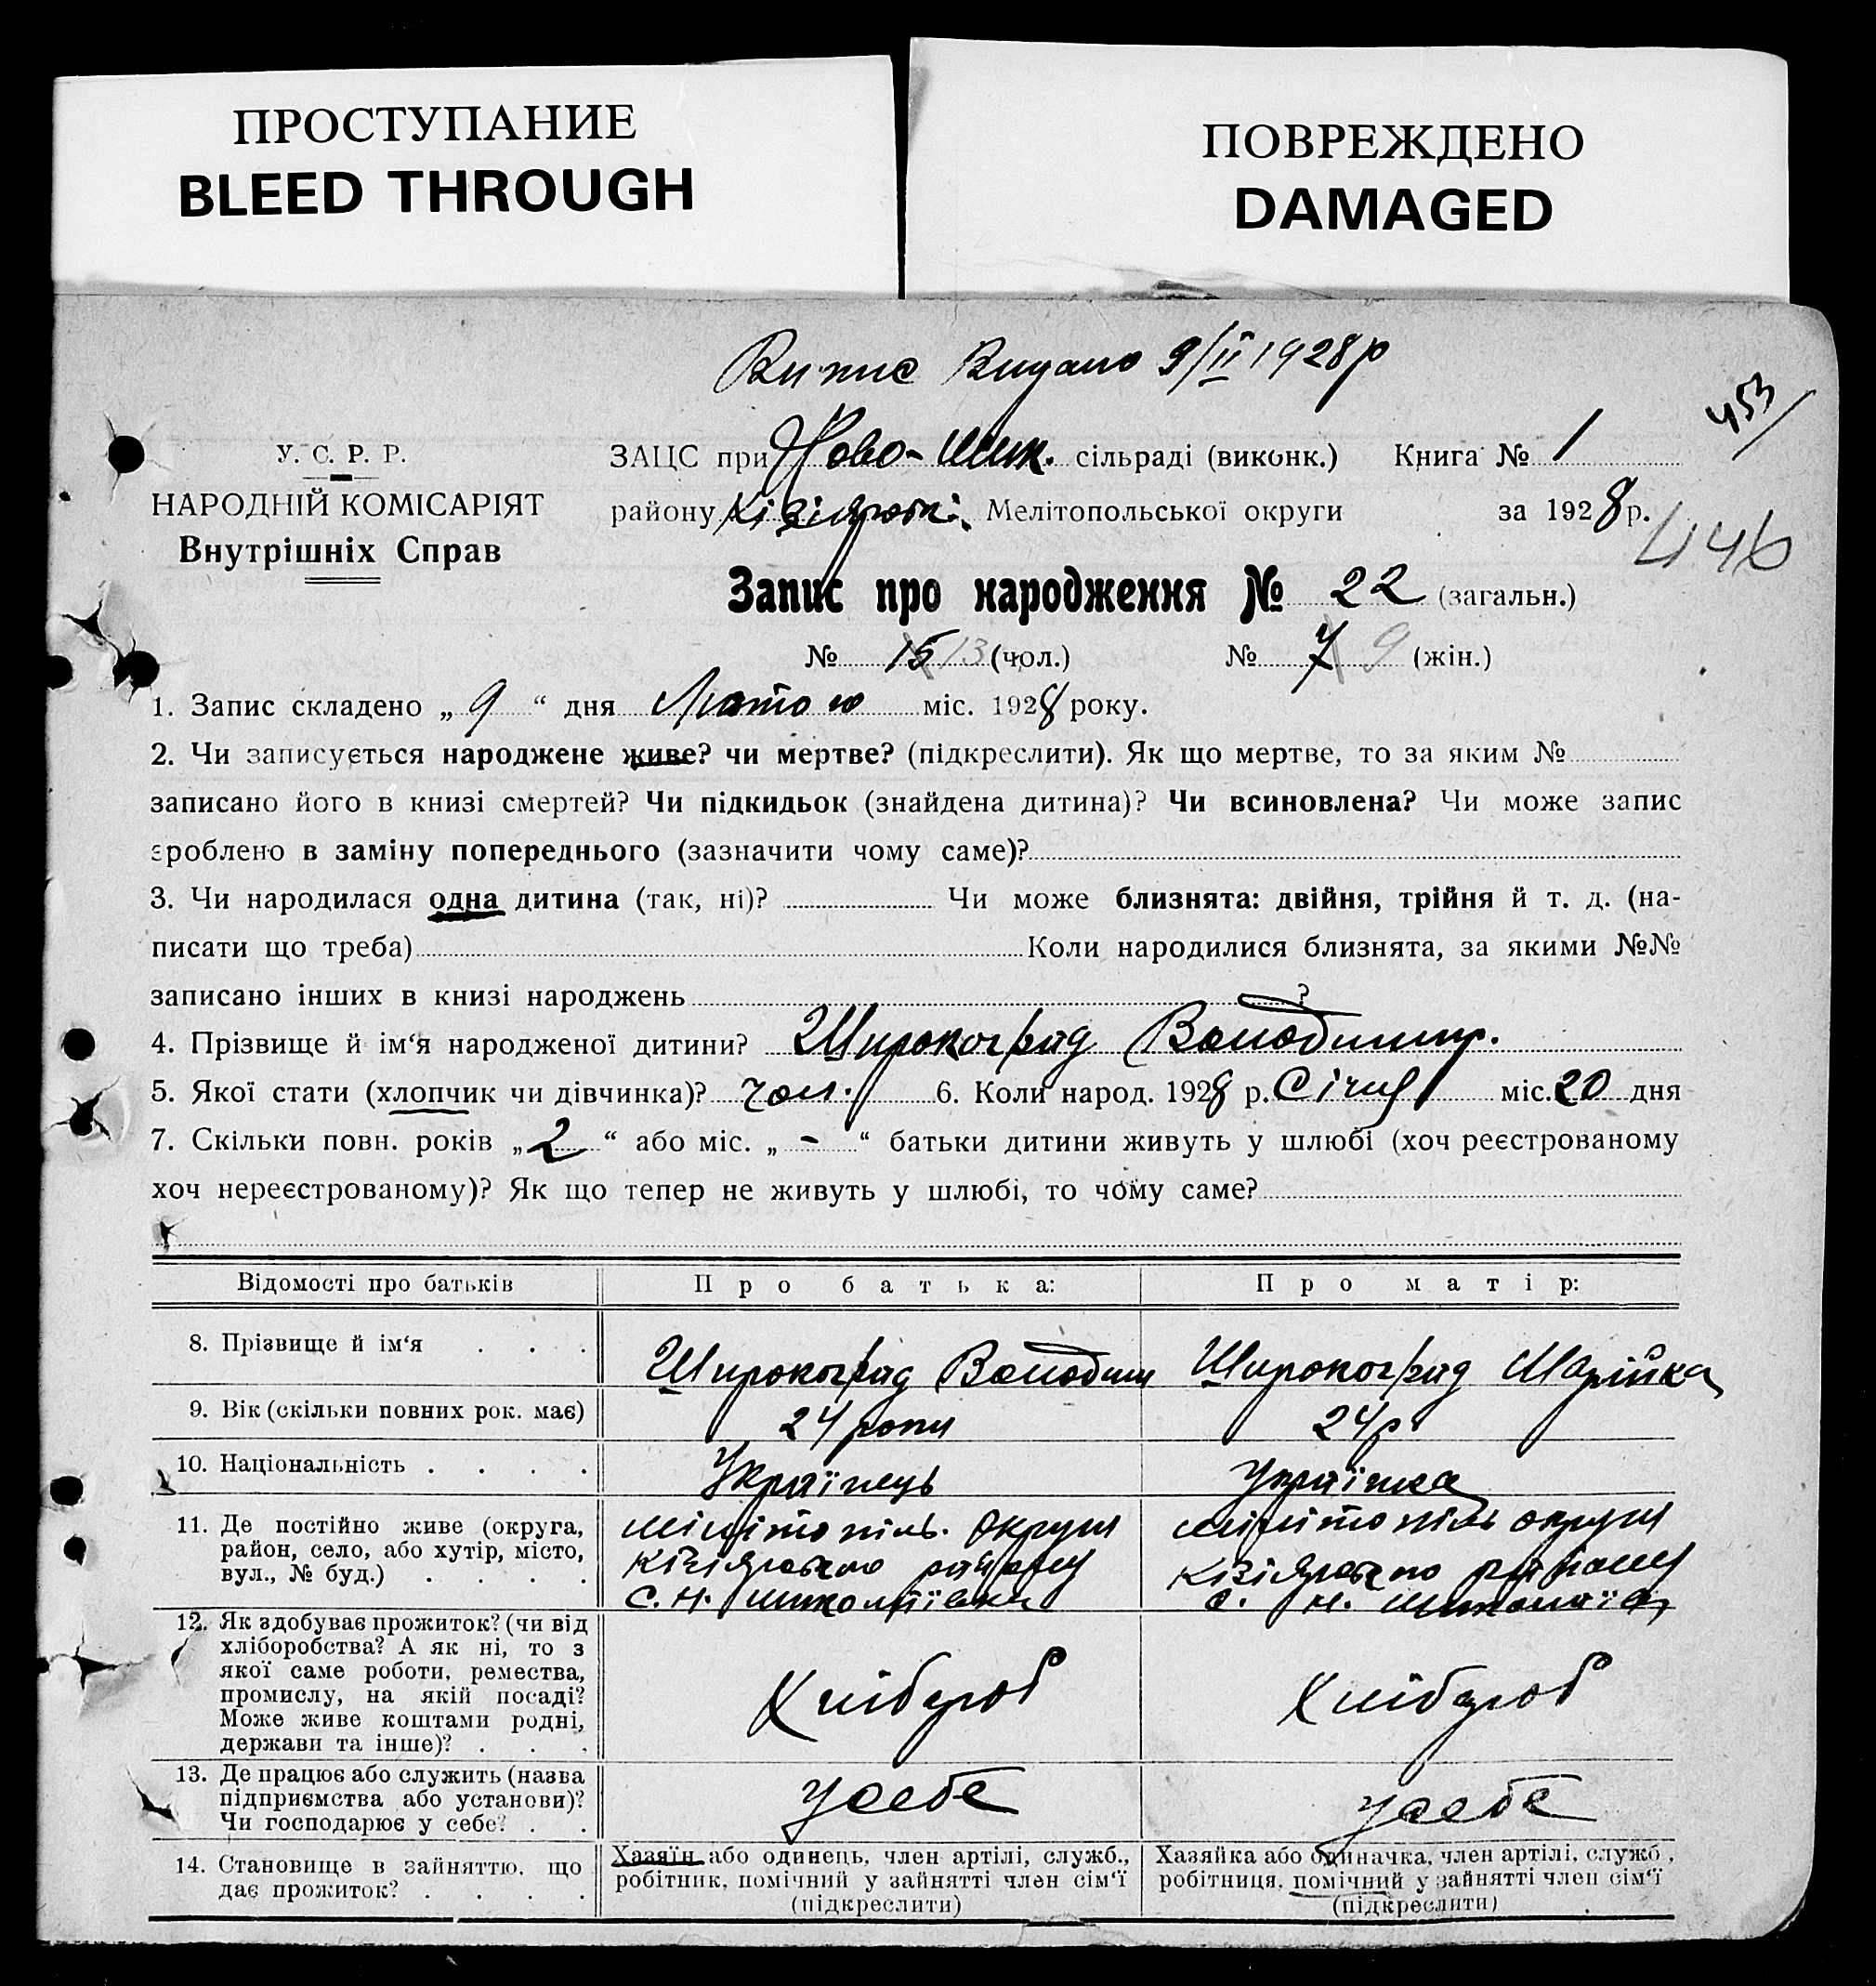 ПРОСТУПАНИЕ
BLEED THROUGH
ПОВРЕЖДЕНО
DAMAGED
Випис Видано 9/II 1928р
453/
У. С. Р. Р.
НАРОДНІЙ КОМІСАРІЯТ
Внутрішніх Справ
ЗАЦС при Ново-Мик. сільраді (виконк.) Книга № 1
району Кізіярськ. Мелітопольської округи за 1928 р.
446
Запис про народження № 22 (загальн.)
№ 15 13 (чол.) № 7 9 (жін.)
1. Запис складено „ 9 “ дня Лютого міс. 1928 року.
2. Чи записується народжене живе? чи мертве? (підкреслити). Як що мертве, то за яким №
записано його в книзі смертей? Чи підкидьок (знайдена дитина)? Чи всиновлена? Чи може запис
зроблено в заміну попереднього (зазначити чому саме)?
3. Чи народилася одна дитина (так, ні)? Чи може близнята: двійня, трійня й т. д. (на-
писати що треба) Коли народилися близнята, за якими №№
записано інших в книзі народжень ?
4. Прізвище й ім‘я народженої дитини? Широкоград Володимир.
5. Якої стати (хлопчик чи дівчинка)? чол. 6. Коли народ. 1928 р. Січня міс. 20 дня
7. Скільки повн. років „ 2 “ або міс. „ - “ батьки дитини живуть у шлюбі (хоч реєстрованому
хоч нереєстрованому)? Як що тепер не живуть у шлюбі, то чому саме?
Відомості про батьків
Про батька:
Про матір:
8. Прізвище й ім‘я . . .
Широкоград Володим
Широкоград Марійка
9. Вік (скільки повних рок. має)
24 роки
24 р
10. Національність . . . .
Українець
Українка
11. Де постійно живе (округа,
район, село, або хутір, місто,
вул., № буд.) . . . .
Мілітопіль. округи
Кізіярського району
С. Н. Миколаївки
Мілітопіль округи
Кізіярського району
С. Н. Миколаїв
12. Як здобуває прожиток? (чи від
хліборобства? А як ні, то з
якої саме роботи, ремества,
промислу, на якій посаді?
Може живе коштами родні,
держави та інше)? . . .
Хлібороб
Хлібороб
13. Де працює або служить (назва
підприємства або установи)?
Чи господарює у себе? . .
У себе
У себе
14. Становище в зайняттю, що
дає прожиток? . . . .
Хазяїн або одинець, член артілі, служб.,
робітник, помічний у зайнятті член сім‘ї
(підкреслити)
Хазяйка або одиначка, член артілі, служб.,
робітниця, помічний у зайнятті член сім‘ї
(підкреслити)